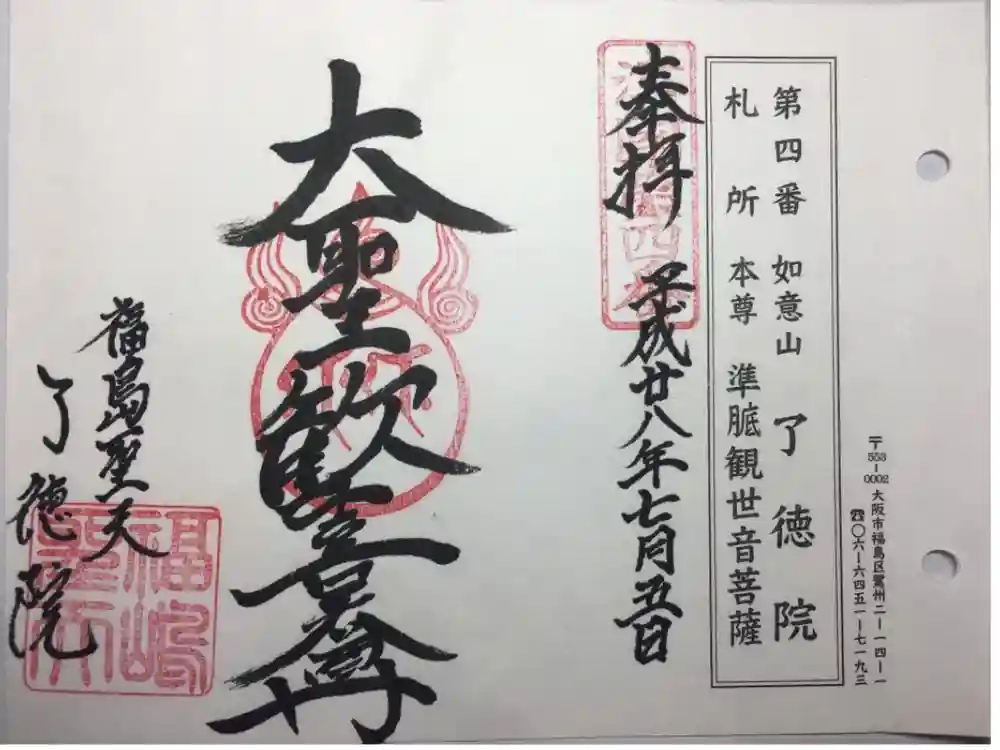 〒553-0002 大阪市福島区鷺州二-一四-一
☎〇六-六四五一-七一九三
第四番 如意山 了徳院
札所 本尊 準胝観世音菩薩
奉拝 平成廿八年七月五日
大聖歓喜尊
福島聖天
了徳院
福嶋聖天